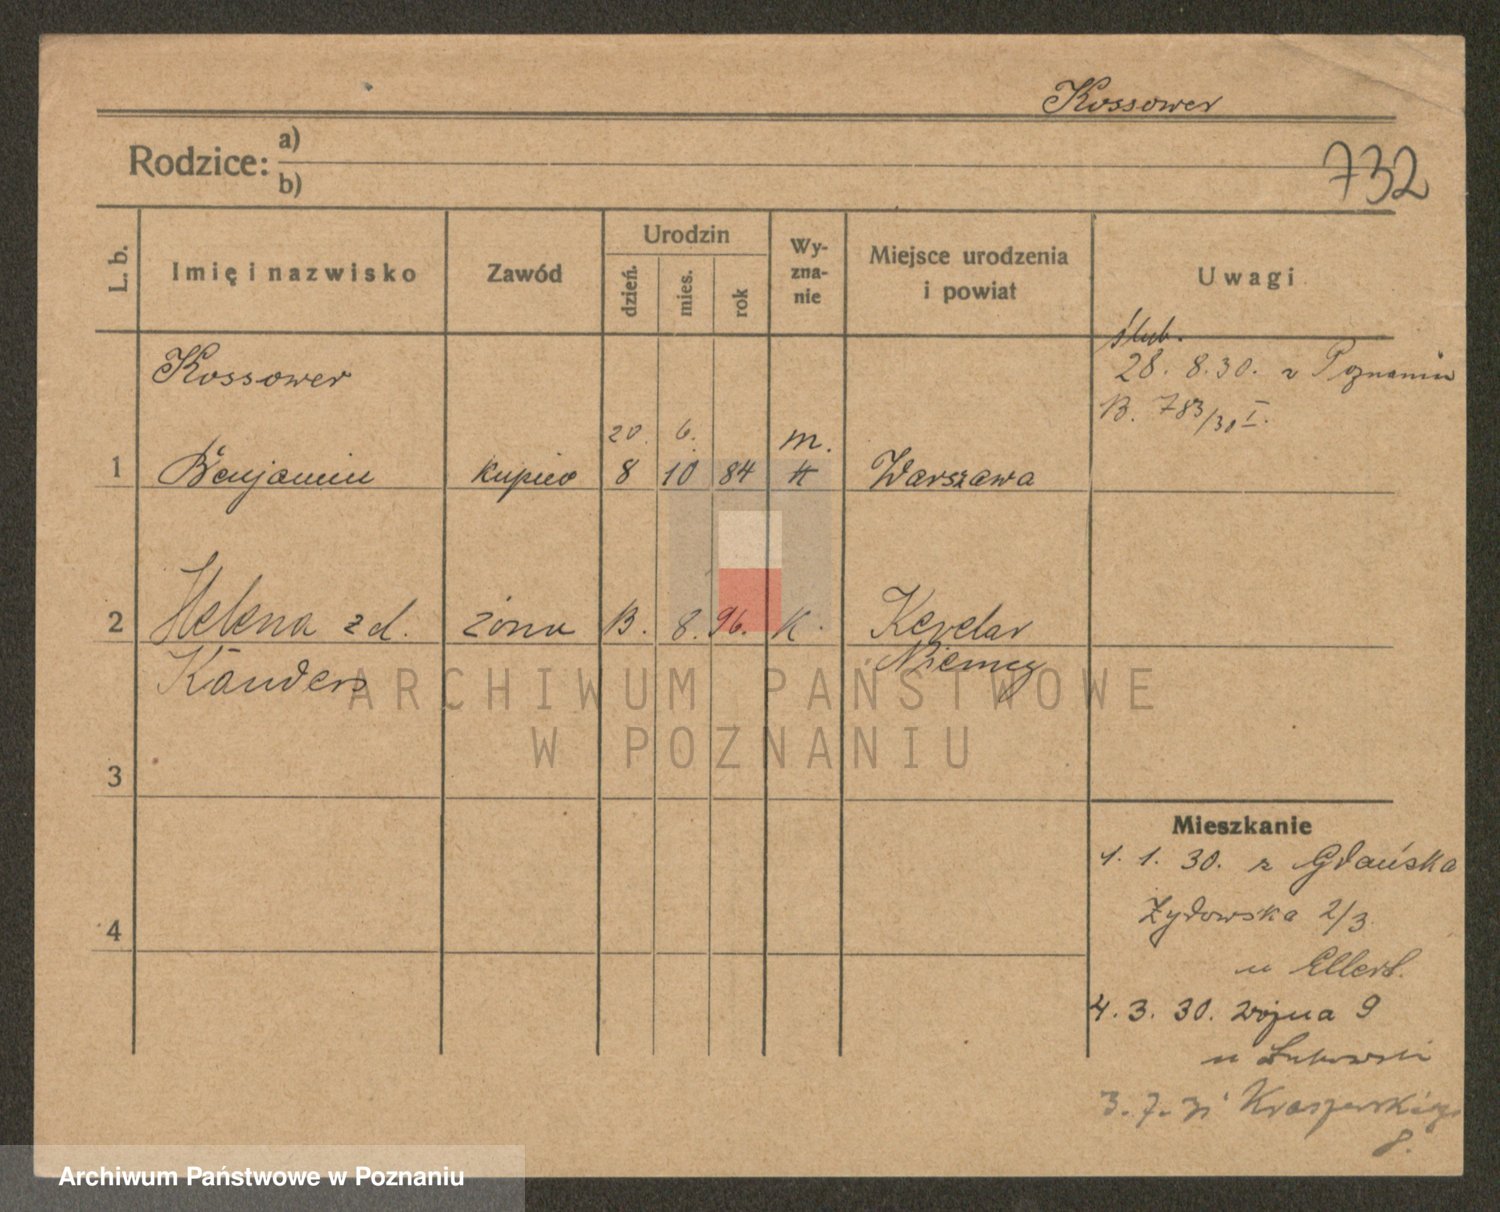 Kossower
732
Rodzice: a)
b)
L. b.
Imię i nazwisko
Zawód
Urodzin
dzień.
mies.
rok
Wy-
zna-
nie
Miejsce urodzenia
i powiat
Uwagi
ślub.
28. 8. 30. w Poznaniu
B. 783/30 I.
Kossower
20. 6. m.
1 Benjamin kupiec 8 10 84 Warszawa
2 Helena z d. żona 8. 96. K. Kevelar
Kanders Niemcy
3
4
Mieszkanie
1. 1. 30. z Gdańska
Żydowska 2/3
u Ellert.
4. 3. 30. Wojna 9
u
3. 7. 31 Kraszewskiego
8.
ARCHIWUM PAŃSTWOWE
W POZNANIU
Archiwum Państwowe w Poznaniu